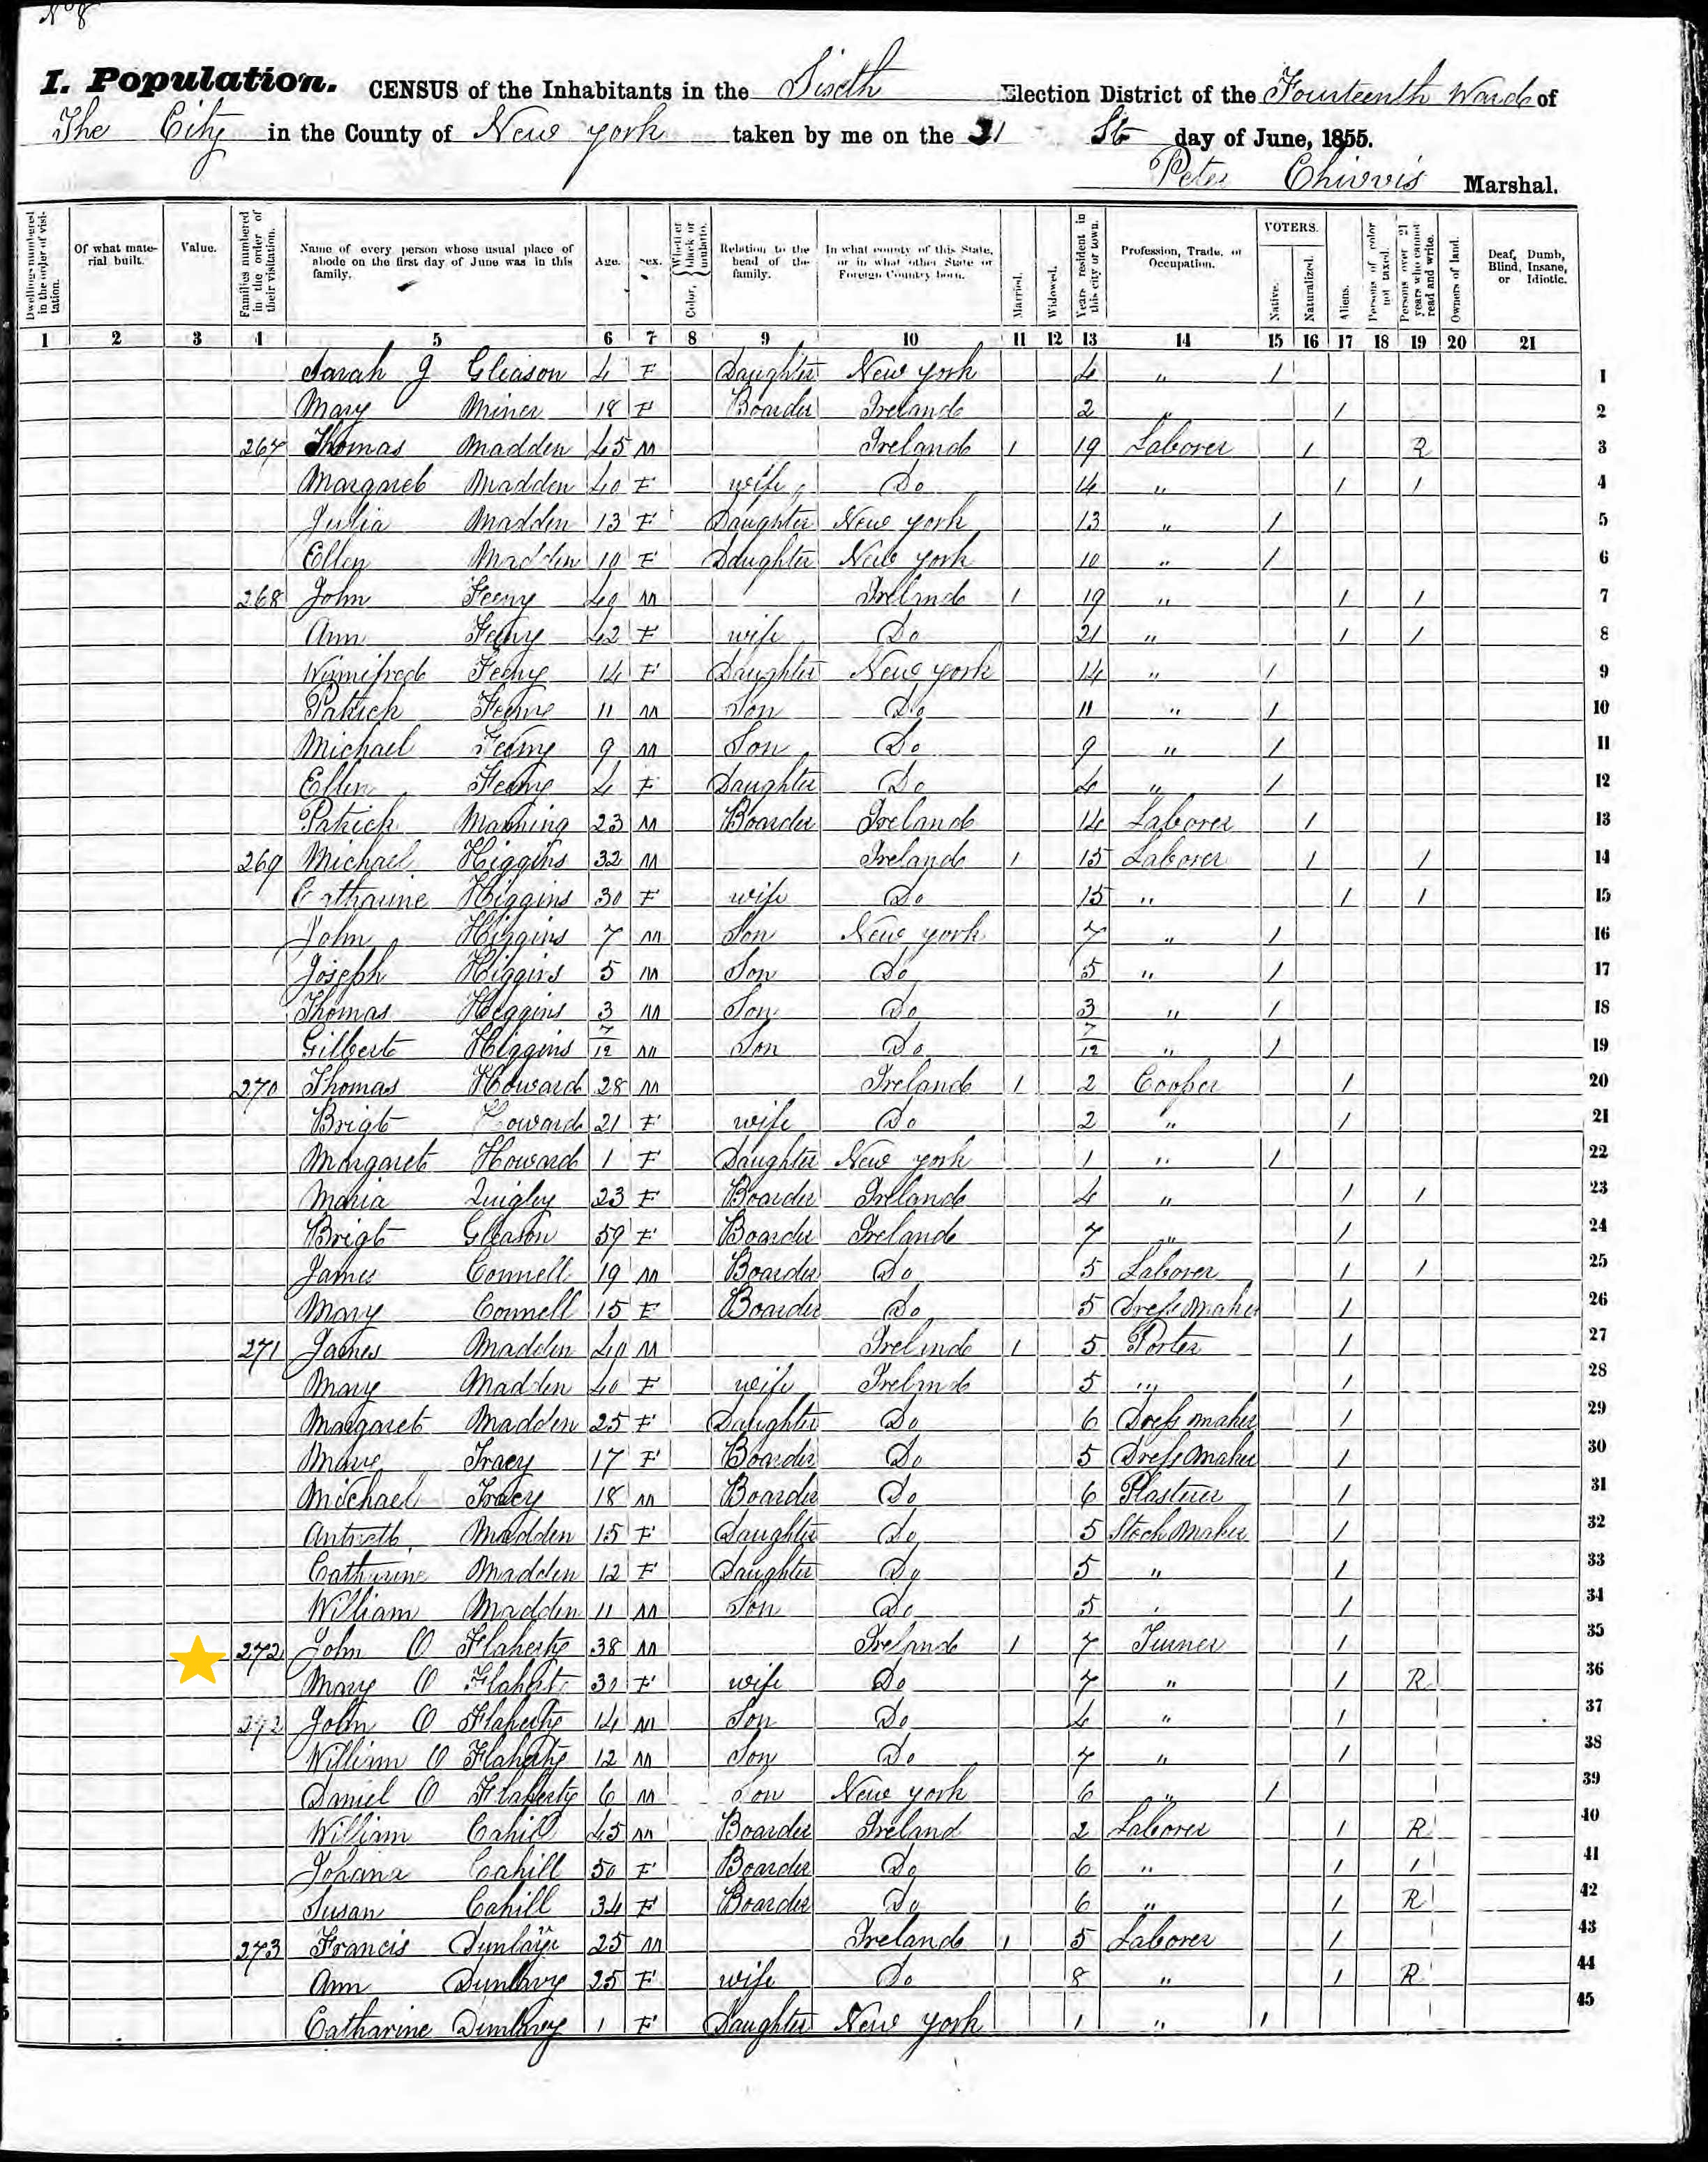 No 8
I. Population. CENSUS of the Inhabitants in the Sixth Election District of the Fourteenth Ward of
The City in the County of New York taken by me on the 21 St day of June, 1855.
Peter Marshal.
Dwellings numbered in the order of visitation. Of what material built. Value. Families numbered in the order of their visitation. Name of every person whose usual place of abode on the first day of June was in this family. Age. Sex. Color, Whether black or mulatto. Relation to the head of the family. In what county of this State, or in what other State or Foreign Country born. Married. Widowed. Years resident in this city or town. Profession, Trade, or Occupation. VOTERS. Native. Naturalized. Aliens. Persons of color not taxed. Persons over 21 years who cannot read and write. Owners of land. Deaf, Dumb, Blind, Insane, or Idiotic.
1 2 3 4 5 6 7 8 9 10 11 12 13 14 15 16 17 18 19 20 21
Sarah J Gleason 4 F Daughter New York 4 " 1 1
Mary Miner 18 F Boarder Ireland 2 " 1 2
267 Thomas Madden 45 M Ireland 1 19 Laborer 1 R 3
Margaret Madden 40 F wife Do 14 " 1 1 4
Julia Madden 13 F Daughter New York 13 " 1 5
Ellen Madden 10 F Daughter New York 10 " 1 6
268 John Feeny 49 M Ireland 1 19 " 1 1 7
Ann Feeny 42 F wife Do 21 " 1 1 8
Winnifred Feeny 14 F Daughter New York 14 " 1 9
Patrick Feeny 11 M Son Do 11 " 1 10
Michael Feeny 9 M Son Do 9 " 1 11
Ellen Feeny 4 F Daughter Do 4 " 1 12
Patrick Manning 23 M Boarder Ireland 14 Laborer 1 13
269 Michael Higgins 32 M Ireland 1 15 Laborer 1 1 14
Catharine Higgins 30 F wife Do 15 " 1 1 15
John Higgins 7 M Son New York 7 " 1 16
Joseph Higgins 5 M Son Do 5 " 1 17
Thomas Higgins 3 M Son Do 3 " 1 18
Gilbert Higgins 7/12 M Son Do 7/12 " 1 19
270 Thomas Howard 28 M Ireland 1 2 Cooper 1 20
Brigt Howard 21 F wife Do 2 " 1 21
Margaret Howard 1 F Daughter New York 1 " 1 22
Maria Quigley 23 F Boarder Ireland 4 " 1 1 23
Brigt Gleason 59 F Boarder Ireland 7 " 1 24
James Connell 19 M Boarder Do 5 Laborer 1 1 25
Mary Connell 15 F Boarder Do 5 Dress Maker 1 26
271 James Madden 40 M Ireland 1 5 Porter 1 27
Mary Madden 40 F wife Ireland 5 " 1 28
Margaret Madden 25 F Daughter Do 6 Dress maker 1 29
Mary Tracy 17 F Boarder Do 5 Dress Maker 1 30
Michael Tracy 18 M Boarder Do 6 Plasterer 1 31
Madden 15 F Daughter Do 5 Stock Maker 1 32
Catharine Madden 12 F Daughter Do 5 " 1 33
William Madden 11 M Son Do 5 " 1 34
272 John O Flaherty 38 M Ireland 1 7 Turner 1 35
Mary O Flaherty 30 F wife Do 7 " 1 R 36
272 John O Flaherty 14 M Son Do 4 " 1 37
William O Flaherty 12 M Son Do 7 " 1 38
Daniel O Flaherty 6 M Son New York 6 " 1 39
William Cahill 45 M Boarder Ireland 2 Laborer 1 R 40
Johana Cahill 50 F Boarder Do 6 " 1 1 41
Susan Cahill 34 F Boarder Do 6 " 1 R 42
273 Francis Dunlavy 25 M Ireland 1 5 Laborer 1 43
Ann Dunlavy 25 F wife Do 8 " 1 R 44
Catharine Dunlavy 1 F Daughter New York 1 " 1 45